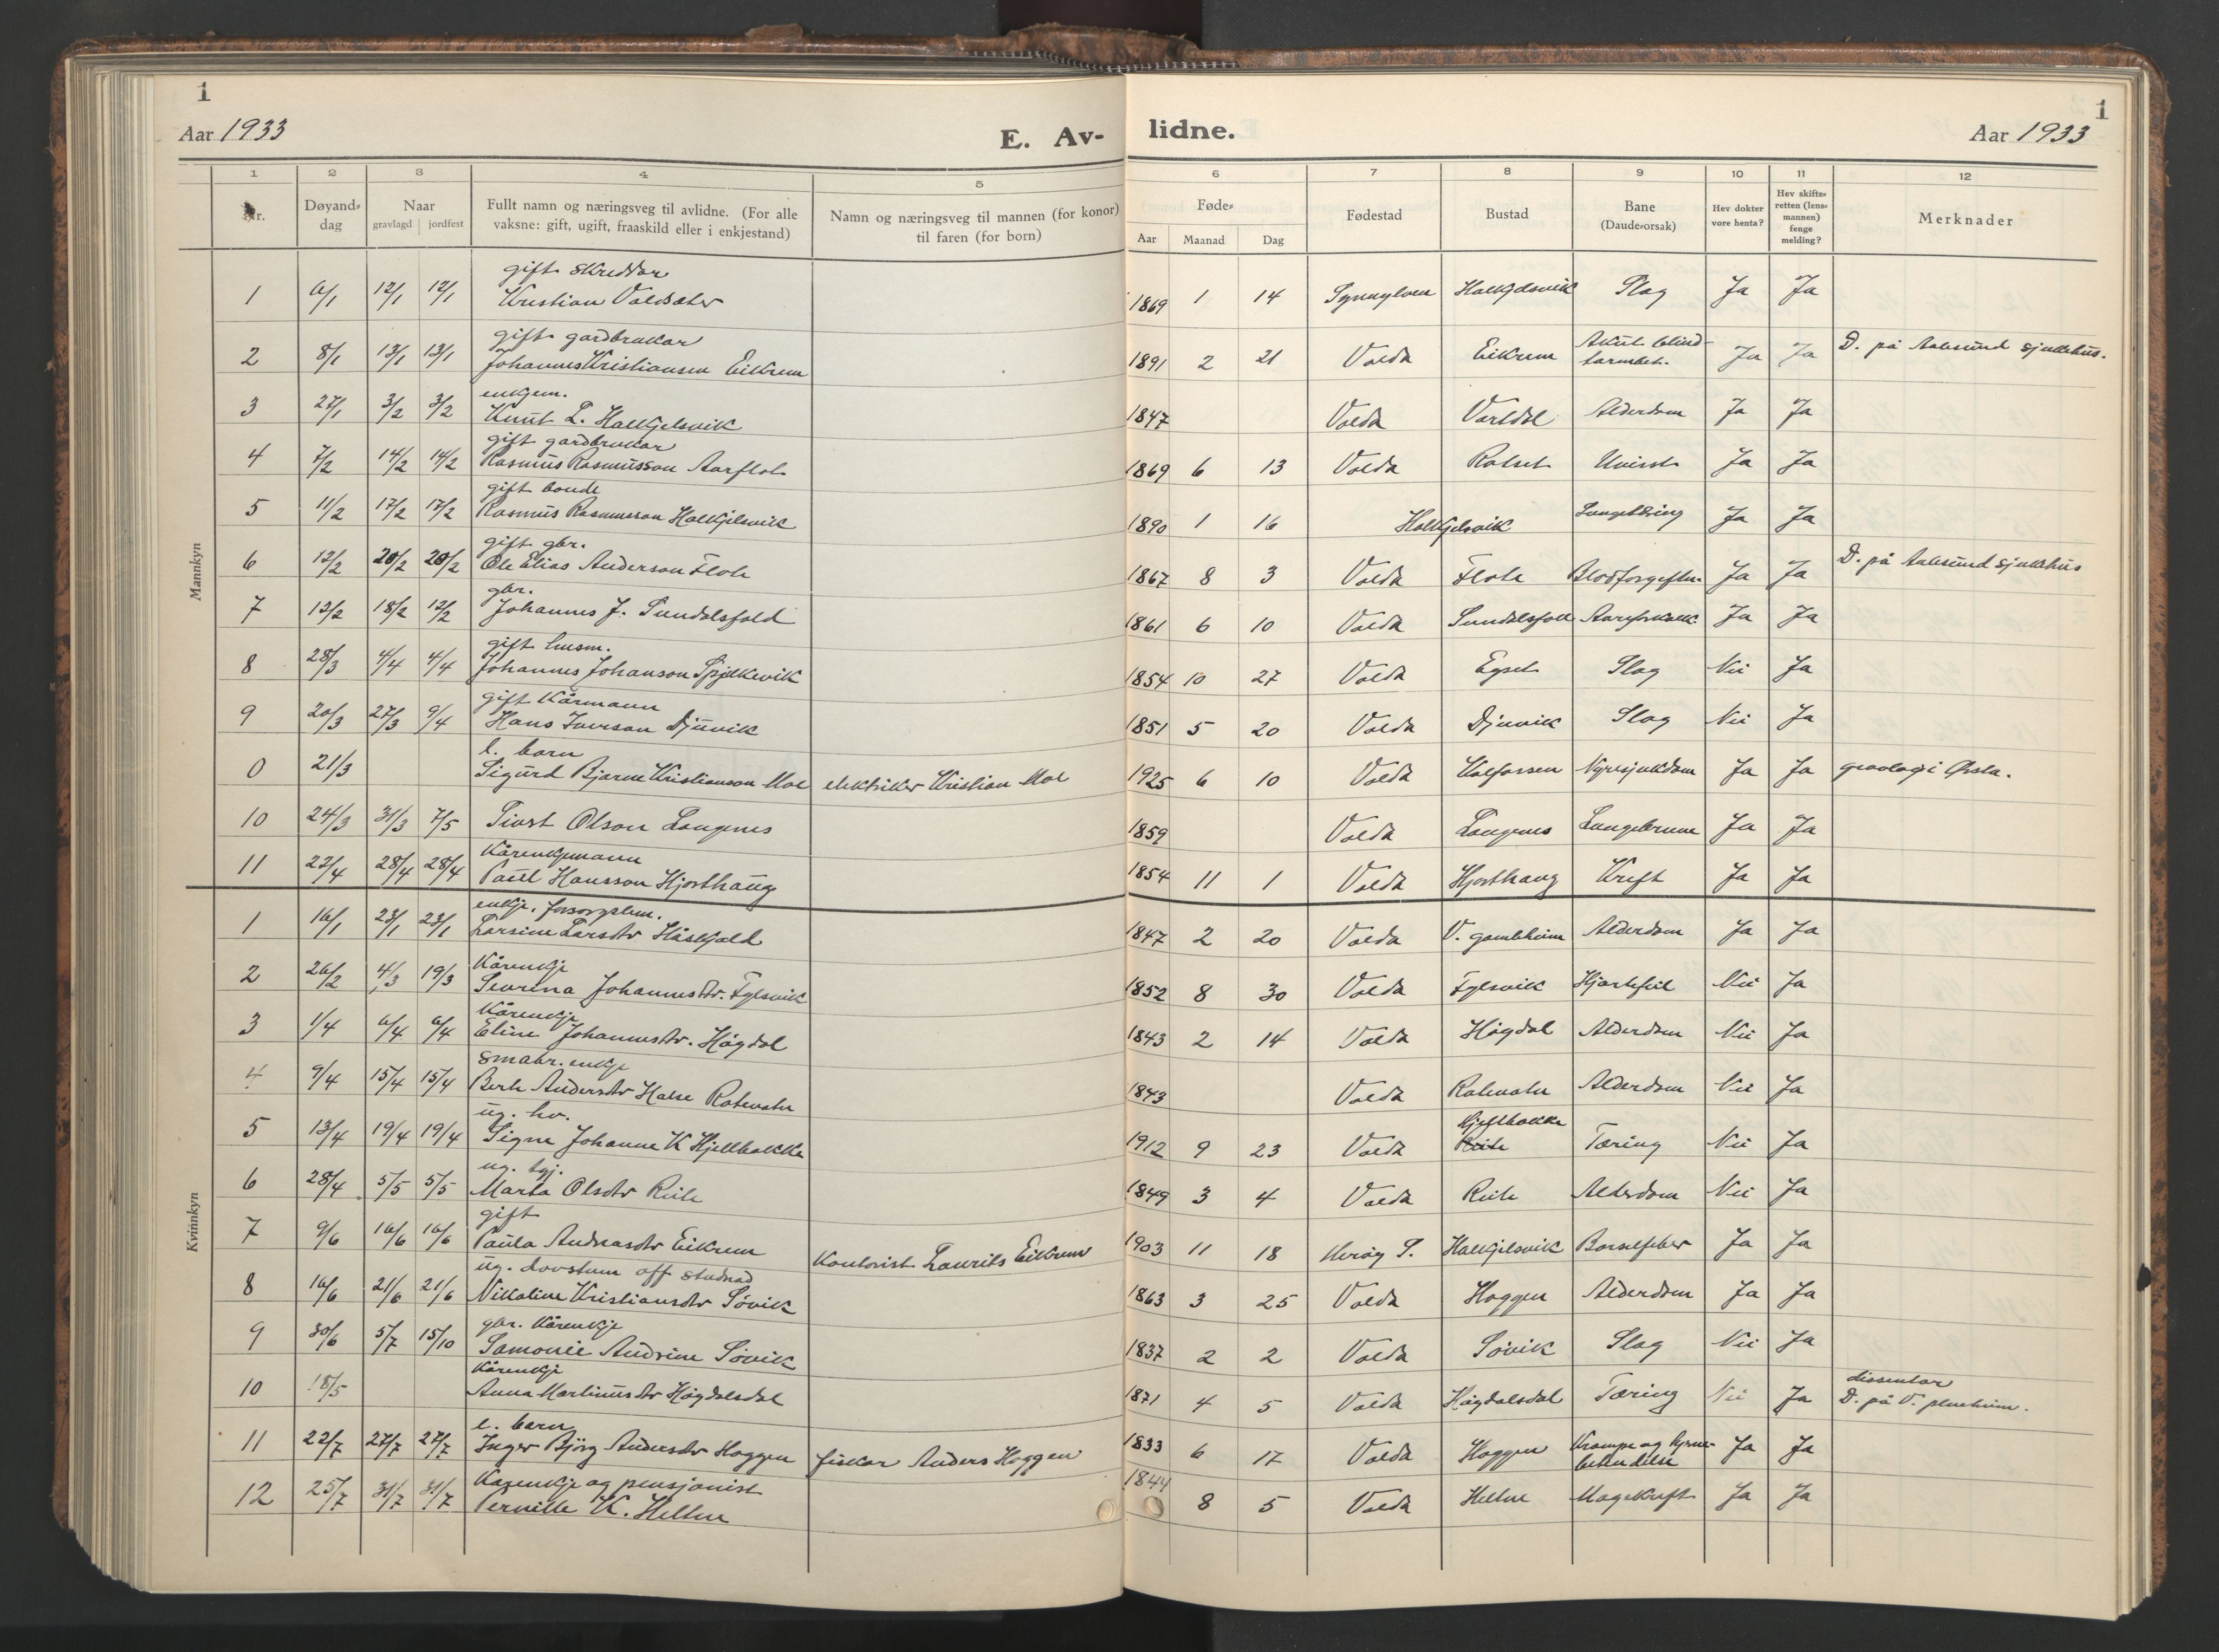 1
Aar 1933
E. Av-
1
2
3
4
5
Nr.
Døyand-
dag
Naar
gravlagd jordfest
Fullt namn og næringsveg til avlidne. (For alle
vaksne: gift, ugift, fraaskild eller i enkjestand)
Namn og næringsveg til mannen (for konor)
til faren (for born)
lidne.
Aar 1933
1
6
7
8
9
10
11
12
Føde-
Aar Maanad Dag
Fødestad
Bustad
Bane
(Daudeorsak)
Hev dokter
vore henta?
Hev skifte-
retten (lens-
mannen)
fenge
melding?
Merknader
Mannkyn
gift skreddar
1 6/1 12/1 12/1 Kristian Valdsæter 1869 1 14 Synnylven Halkjelsvik Slag Ja Ja
gift gardbrukar
2 8/1 13/1 13/1 Johannes Kristiansen Eikrem 1891 2 21 Volda Eikrem Akut blind- Ja Ja D. på Aalesund sjukehus.
tarmbet.
enkjem.
3 27/1 3/2 3/2 Knut L. Halkjelsvik 1847 Volda Alderdom Ja Ja
gift gardbrukar
4 7/2 14/2 14/2 Rasmus Rasmusson Aarflot 1869 6 13 Volda Rotset Uvisst Ja Ja
gift bonde
5 11/2 17/2 17/2 Rasmus Rasmusson Halkjelsvik 1890 1 16 Halkjelsvik Lungetæring Ja Ja
gift gbr.
6 12/2 20/2 20/2 Ole Elias Anderson Flote 1867 8 3 Volda Flote Blodforgiftn. Ja Ja D. på Aalesund sjukehus
gbr.
7 12/2 18/2 12/2 Johannes J. Sundalsfold 1861 6 10 Volda Sundalsfold Aareforkalk. Ja Ja
gift husm.
8 28/3 4/4 4/4 Johannes Johanson Spjelkevik 1854 10 27 Volda Egset Slag Nei Ja
gift kårmann
9 20/3 27/3 9/4 Hans Iverson Djuvik 1851 5 20 Volda Djuvik Slag Nei Ja
e. barn
0 21/3 Sigurd Bjarne Kristianson Moe elektriker Kristian Moe 1925 6 10 Volda Halfossen Nyresjukdom Ja Ja gravlagd i Ørsta.
10 24/3 31/3 7/5 Sivert Olson Langenes 1859 Volda Langenes Lungebrune Ja Ja
Kårenkjemann
11 22/4 28/4 28/4 Paul Hansson Hjorthaug 1854 11 1 Volda Hjorthaug Kreft Ja Ja
Kvinnkyn
enkje. forsorgslem.
1 16/1 23/1 23/1 Larsine Larsdtr Håskjold 1847 2 20 Volda V. gamleheim Alderdom Ja Ja
Kårenkje
2 26/2 4/3 19/3 Severina Johannesdtr. Fylsvik 1852 8 30 Volda Fylsvik Hjartefeil Nei Ja
Kårenkje
3 1/4 6/4 6/4 Eline Johannesdtr. Høgdal 1843 2 14 Volda Høgdal Alderdom Nei Ja
småbr. enkje
4 9/4 15/4 15/4 Berte Andersdtr Halse Rotevatn 1843 Volda Rotevatn Alderdom Nei Ja
ug. hv.
5 13/4 19/4 19/4 Signe Johanne K Hjellbakke 1912 9 23 Volda Hjellbakke Tæring Nei Ja
ug. tgj.
6 28/4 5/5 5/5 Marta Olsdtr Reite 1849 3 4 Volda Reite Alderdom Nei Ja
gift
7 9/6 16/6 16/6 Paula Andreasdtr Eikrem Kontorist Laurits Eikrem 1903 11 18 Herøy S. Halkjelsvik Barselfeber Ja Ja
ug. dovstum off studnad
8 16/6 21/6 21/6 Nikoline Kristiansdtr Søvik 1863 3 25 Volda Hoggen Alderdom Ja Ja
gbr. kårenkje
9 30/6 5/7 15/10 Samonie Andrine Søvik 1837 2 2 Volda Søvik Slag Nei Ja
Kårenkje dissentar
10 18/5 Anna Martinusdtr Høgdalsdal 1871 4 5 Volda Høgdalsdal Tæring Nei Ja D. på V. pleiheim.
e. barn
11 22/7 27/7 27/7 Inger Bjørg Andersdtr Hoggen fiskar Anders Hoggen 1833 6 17 Volda Hoggen Krampe og hjerne- Ja Ja
betendelse
Kårenkje og pensjonist
12 25/7 31/7 31/7 Pernille K. Heltne 1844 8 5 Volda Heltne Magekreft Ja Ja